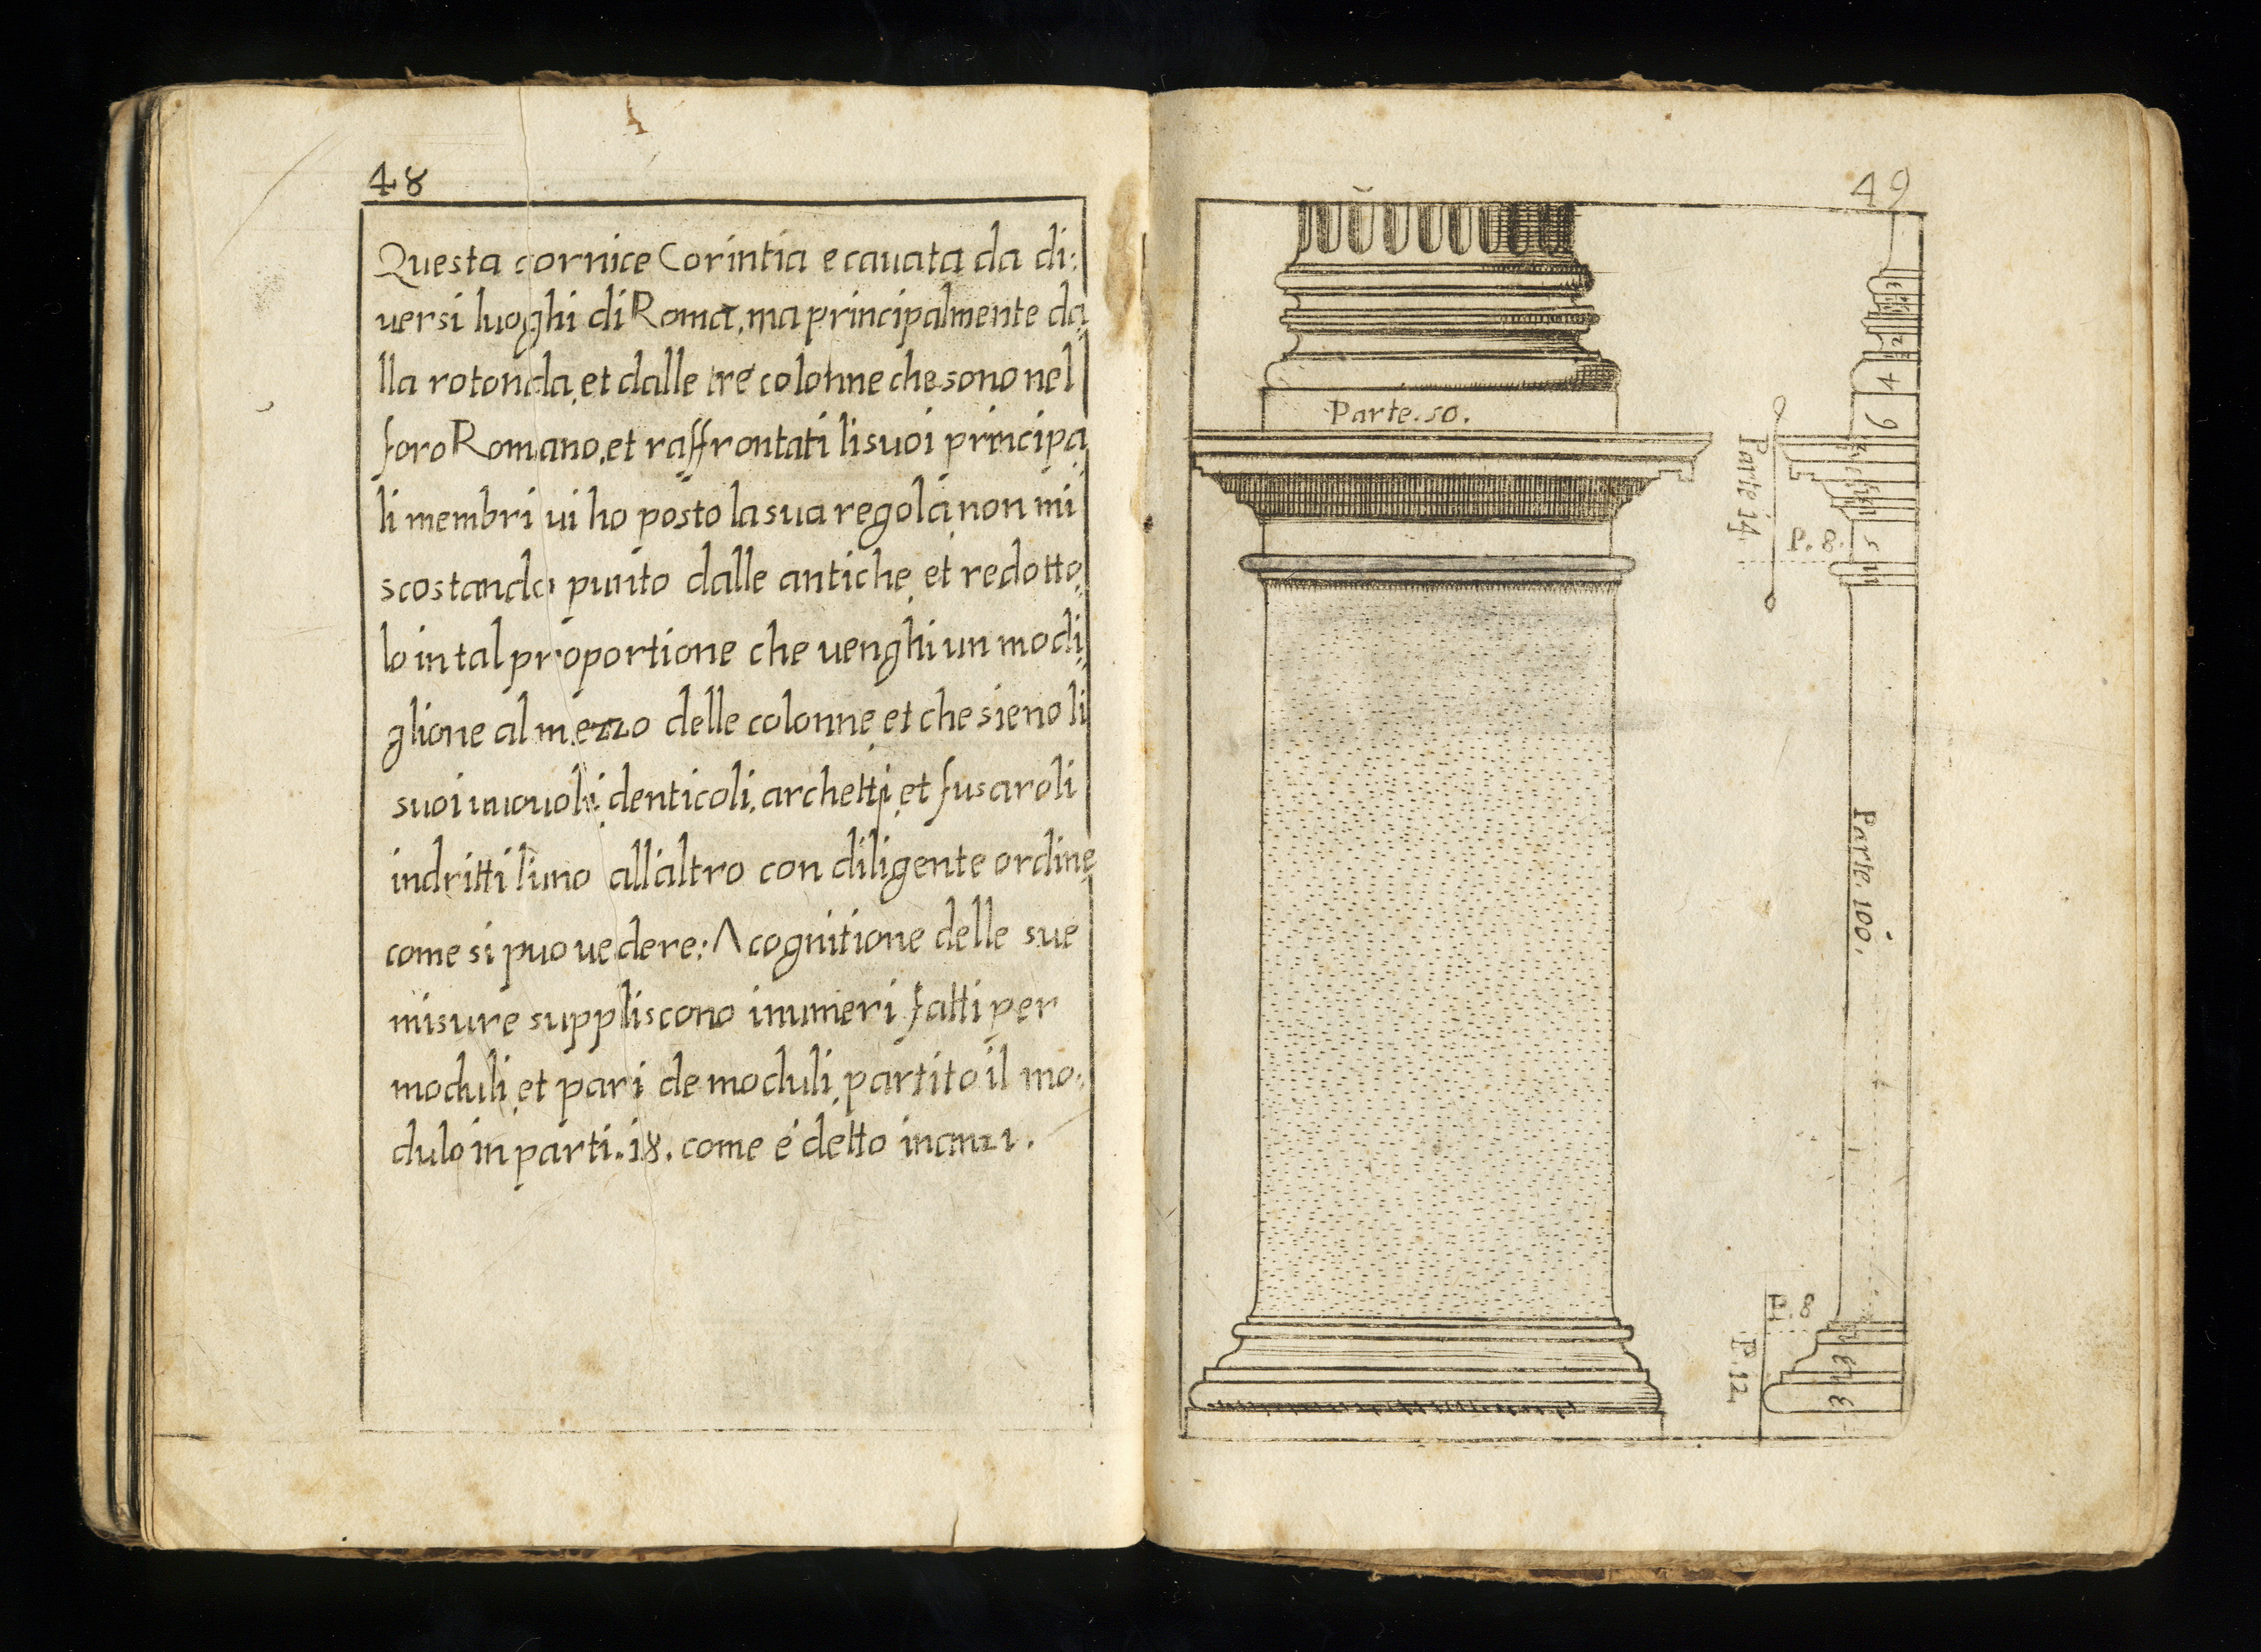 48
Questa cornice Corintia e cauata da di:
uersi luoghi di Roma, ma principalmente da
lla rotonda, et dalle tre colonne che sono nel
foro Romano, et raffrontati li suoi principa
li membri ui ho posto la sua regola, non mi
scostando punto dalle antiche, et redotto
lo in tal proportione che uenghi un modi
glione al mezzo delle colonne, et che sieno li
suoi uuouoli, denticoli, archetti, et fusaroli
indritti l'uno all'altro con diligente ordine
come si puo uedere: A cognitione delle sue
misure suppliscono i numeri fatti per
moduli, et pari de moduli, partito il mo:
dulo in parti. i8. come é detto inanzi.
49
Parte. 50.
4
6
Parte i4.
P. 8.
5
Parte. 100.
P. 8
P. 12
3